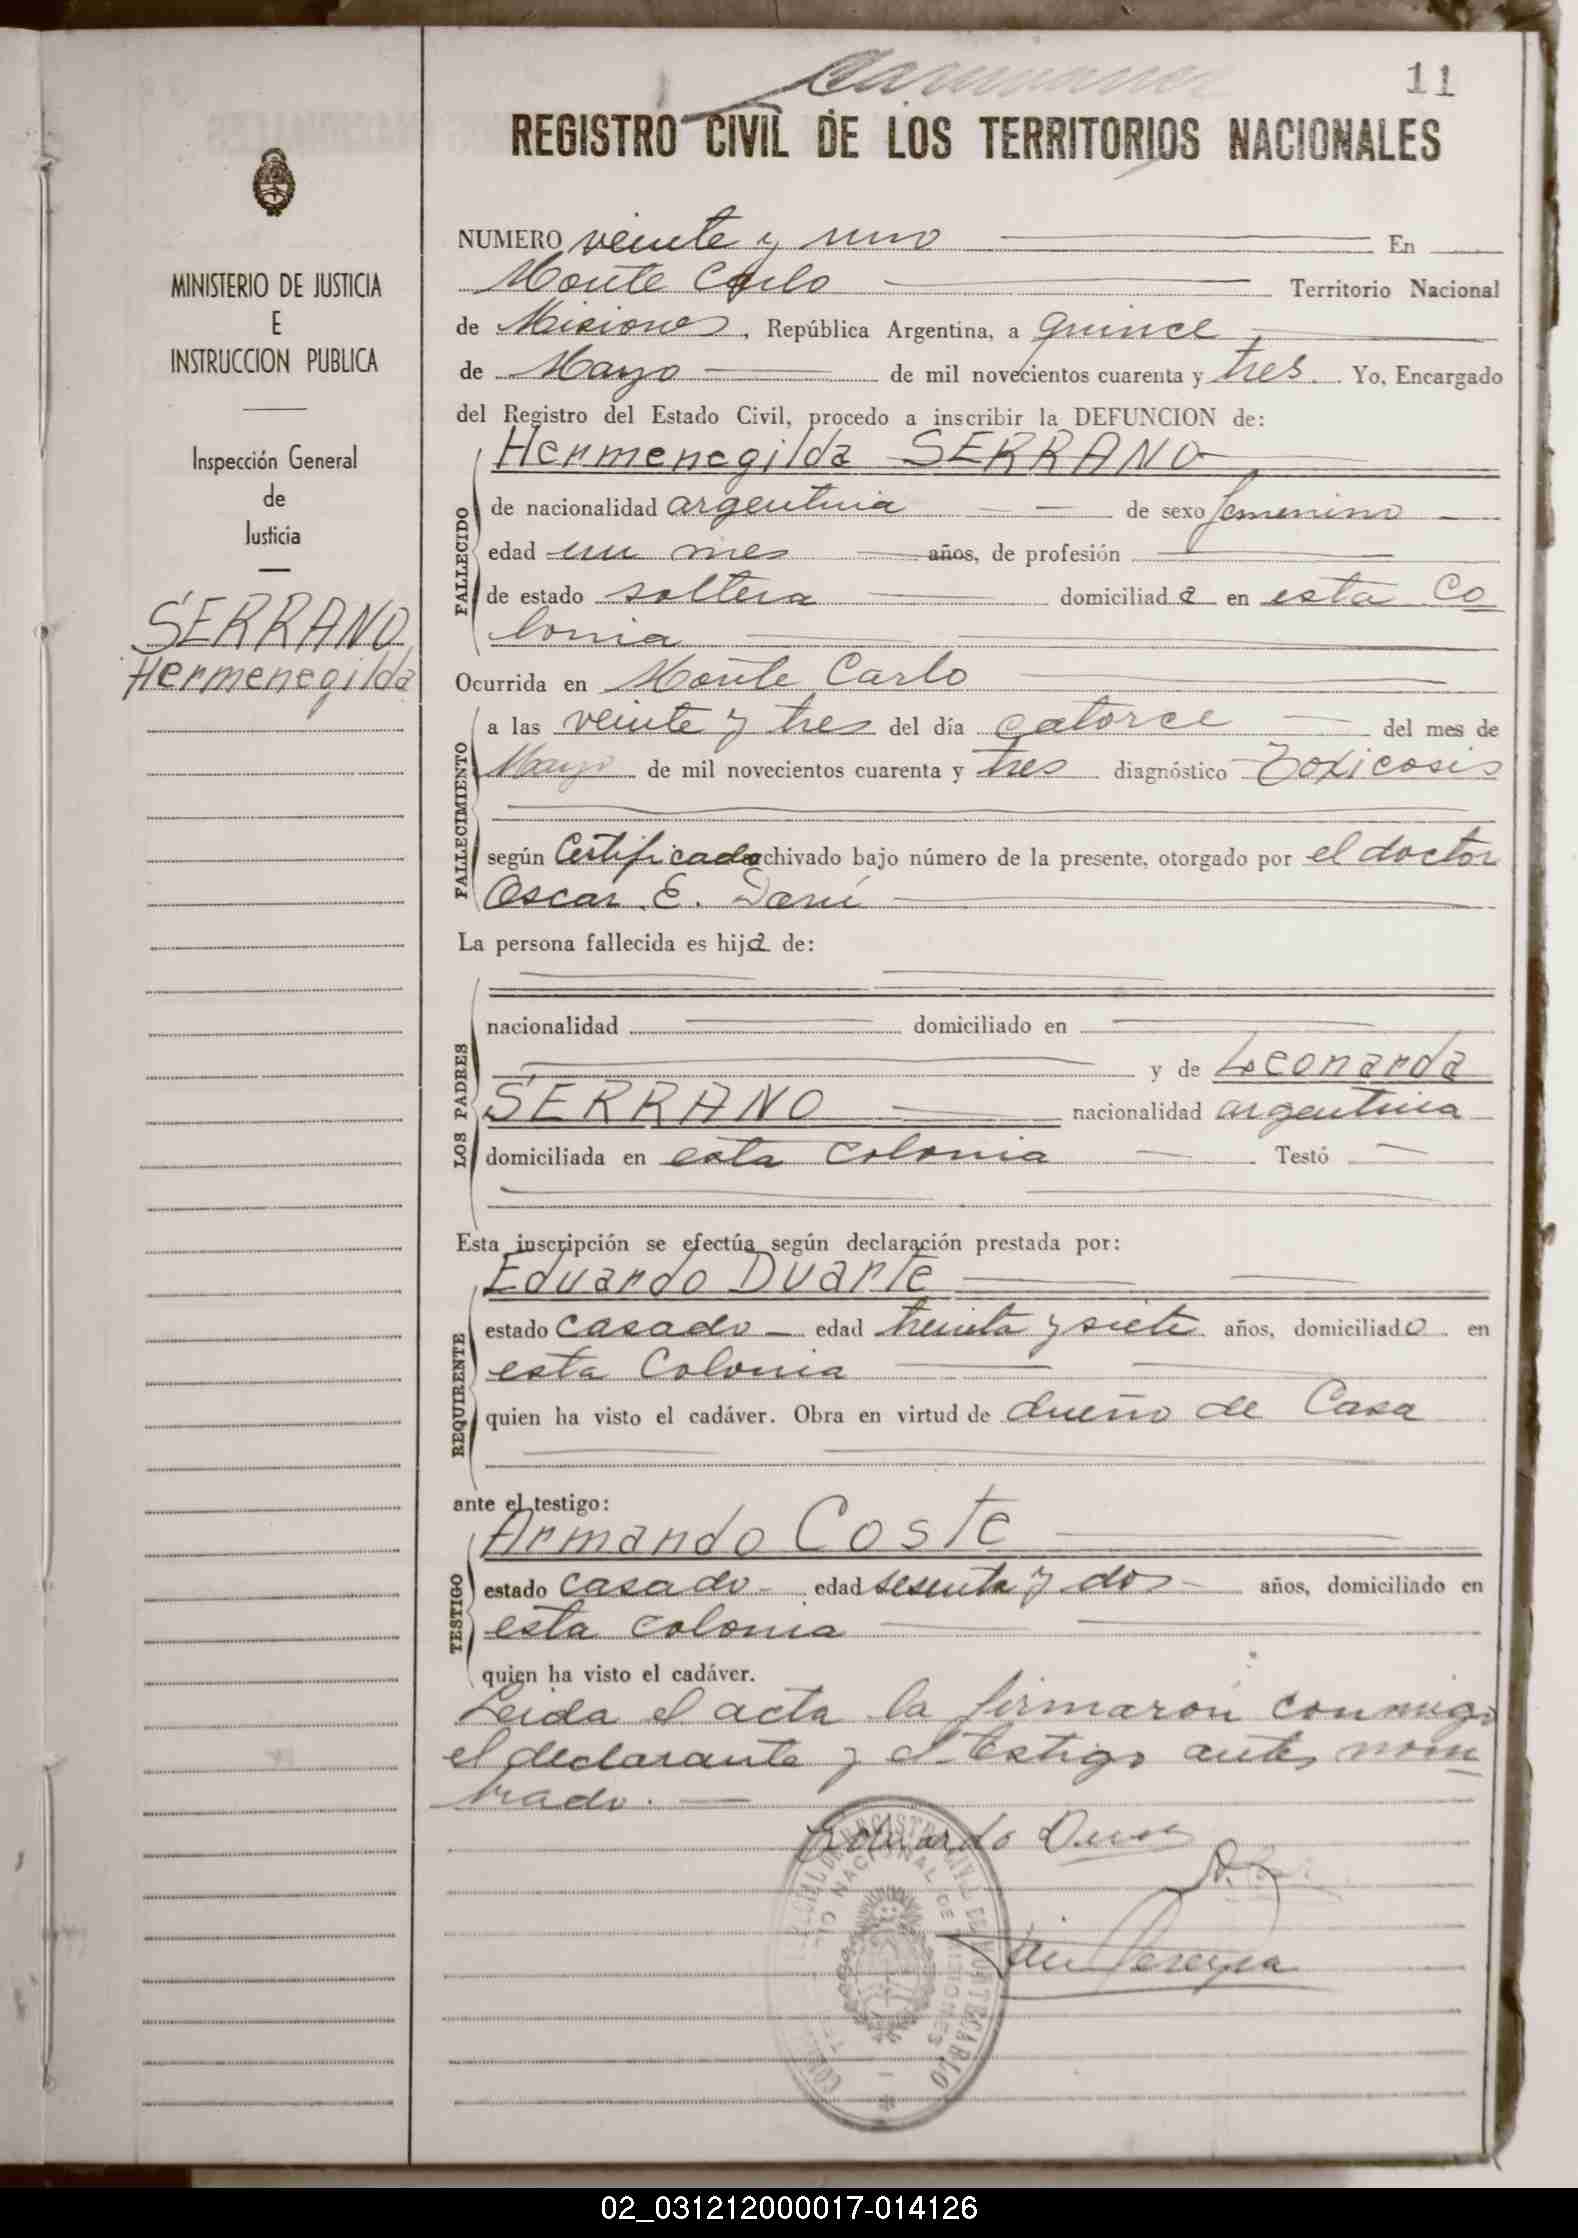 11
REGISTRO CIVIL DE LOS TERRITORIOS NACIONALES
MINISTERIO DE JUSTICIA
E
INSTRUCCION PUBLICA
Inspección General
de
Justicia
SERRANO
Hermenegilda
NUMERO veinte y uno En
Monte Carlo Territorio Nacional
de Misiones, República Argentina, a quince
de Mayo de mil novecientos cuarenta y tres. Yo, Encargado
del Registro del Estado Civil, procedo a inscribir la DEFUNCION de:
Hermenegilda SERRANO
FALLECIDO
de nacionalidad argentina de sexo femenino
edad un mes años, de profesión
de estado soltera domiciliada en esta Co
lonia
Ocurrida en Monte Carlo
FALLECIMIENTO
a las veinte y tres del día catorce del mes de
Mayo de mil novecientos cuarenta y tres diagnóstico Toxicosis
según Certificado chivado bajo número de la presente, otorgado por el doctor
Oscar E.
La persona fallecida es hija de:
LOS PADRES
nacionalidad domiciliado en
y de Leonarda
SERRANO nacionalidad argentina
domiciliada en esta colonia Testó
Esta inscripción se efectúa según declaración prestada por:
Eduardo Duarte
REQUIRENTE
estado casado edad treinta y siete años, domiciliado en
esta Colonia
quien ha visto el cadáver. Obra en virtud de dueño de Casa
ante el testigo:
Armando Coste
TESTIGO
estado casado edad sesenta y dos años, domiciliado en
esta colonia
quien ha visto el cadáver.
Leida el acta la firmaron conmigo
el declarante y el testigo antes nom
brado.
Eduardo
Pereyra
02_031212000017-014126